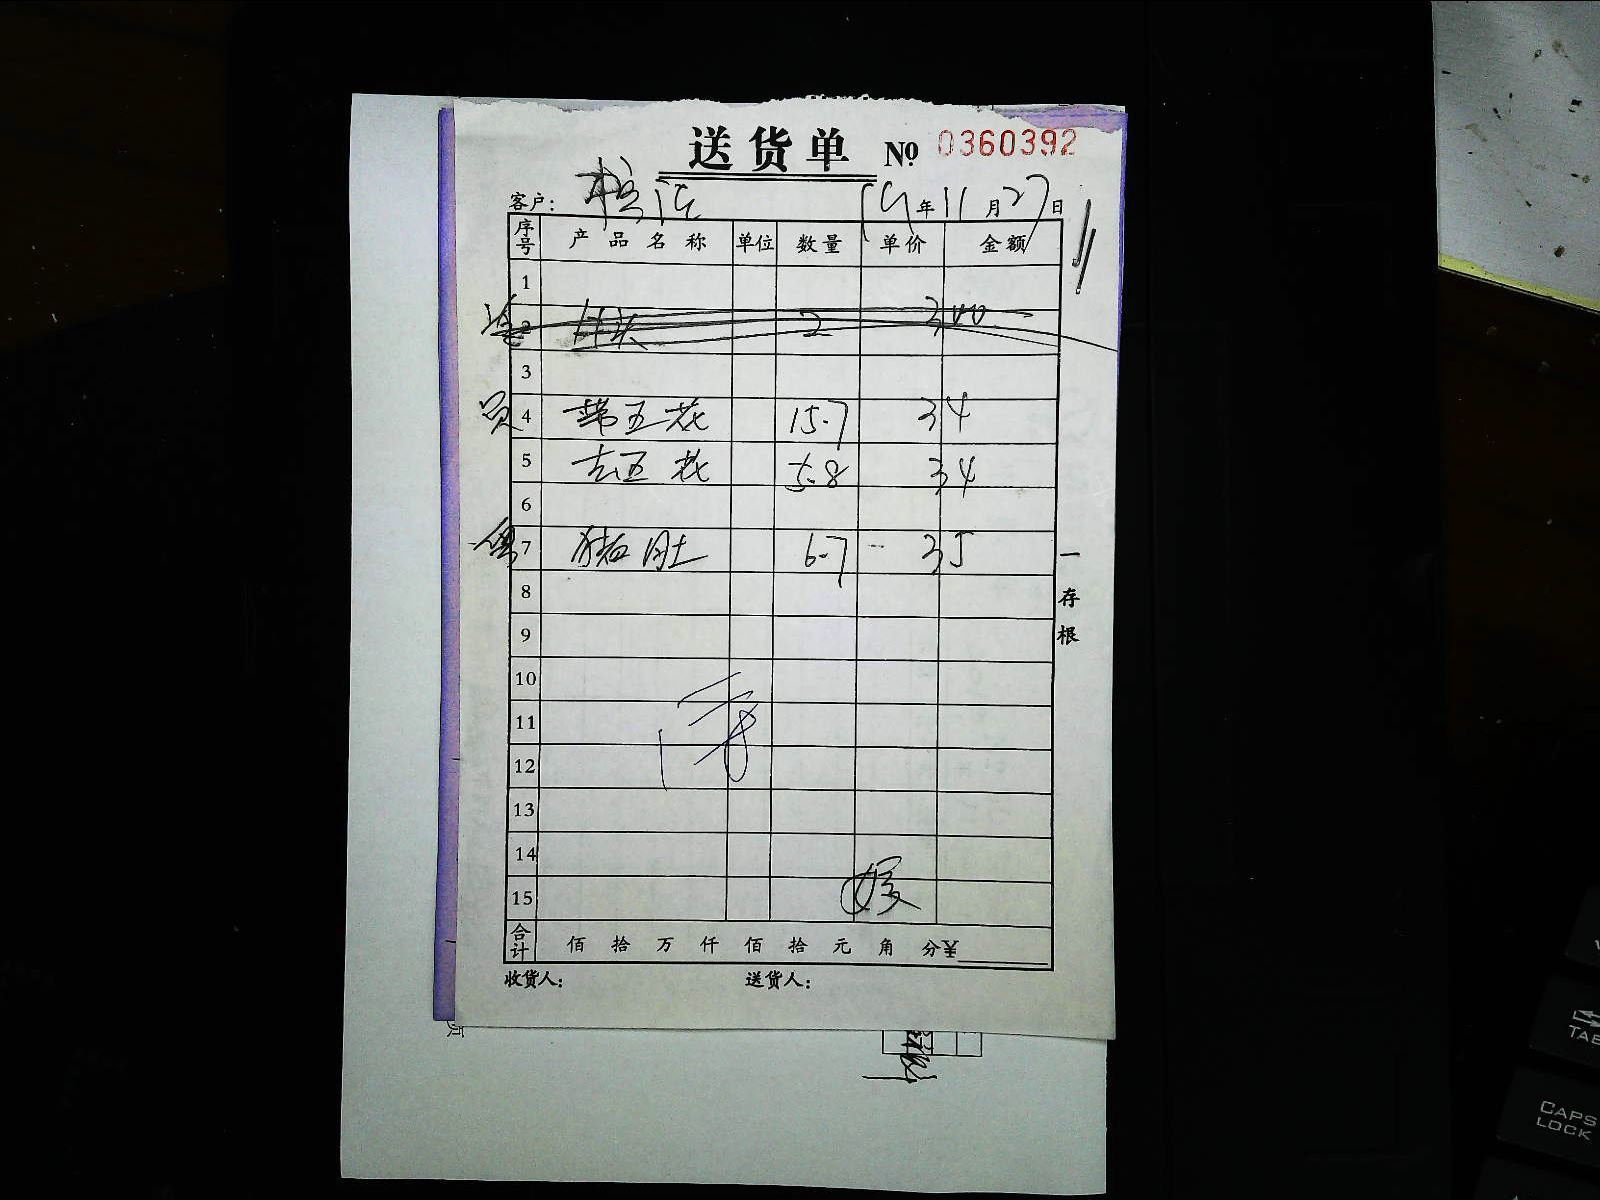 送货单 № 0360392
客户： 19年11月27日
序号 产品名称 单位 数量 单价 金额
1
2 2 300
3
4 带五花 15.7 34
5 去五花 5.8 34
6
7 猪肚 6.7 35
8
9
10
11
12
13
14
15
合计 佰 拾 万 仟 佰 拾 元 角 分¥
收货人： 送货人：
一存根
TAB
CAPS LOCK